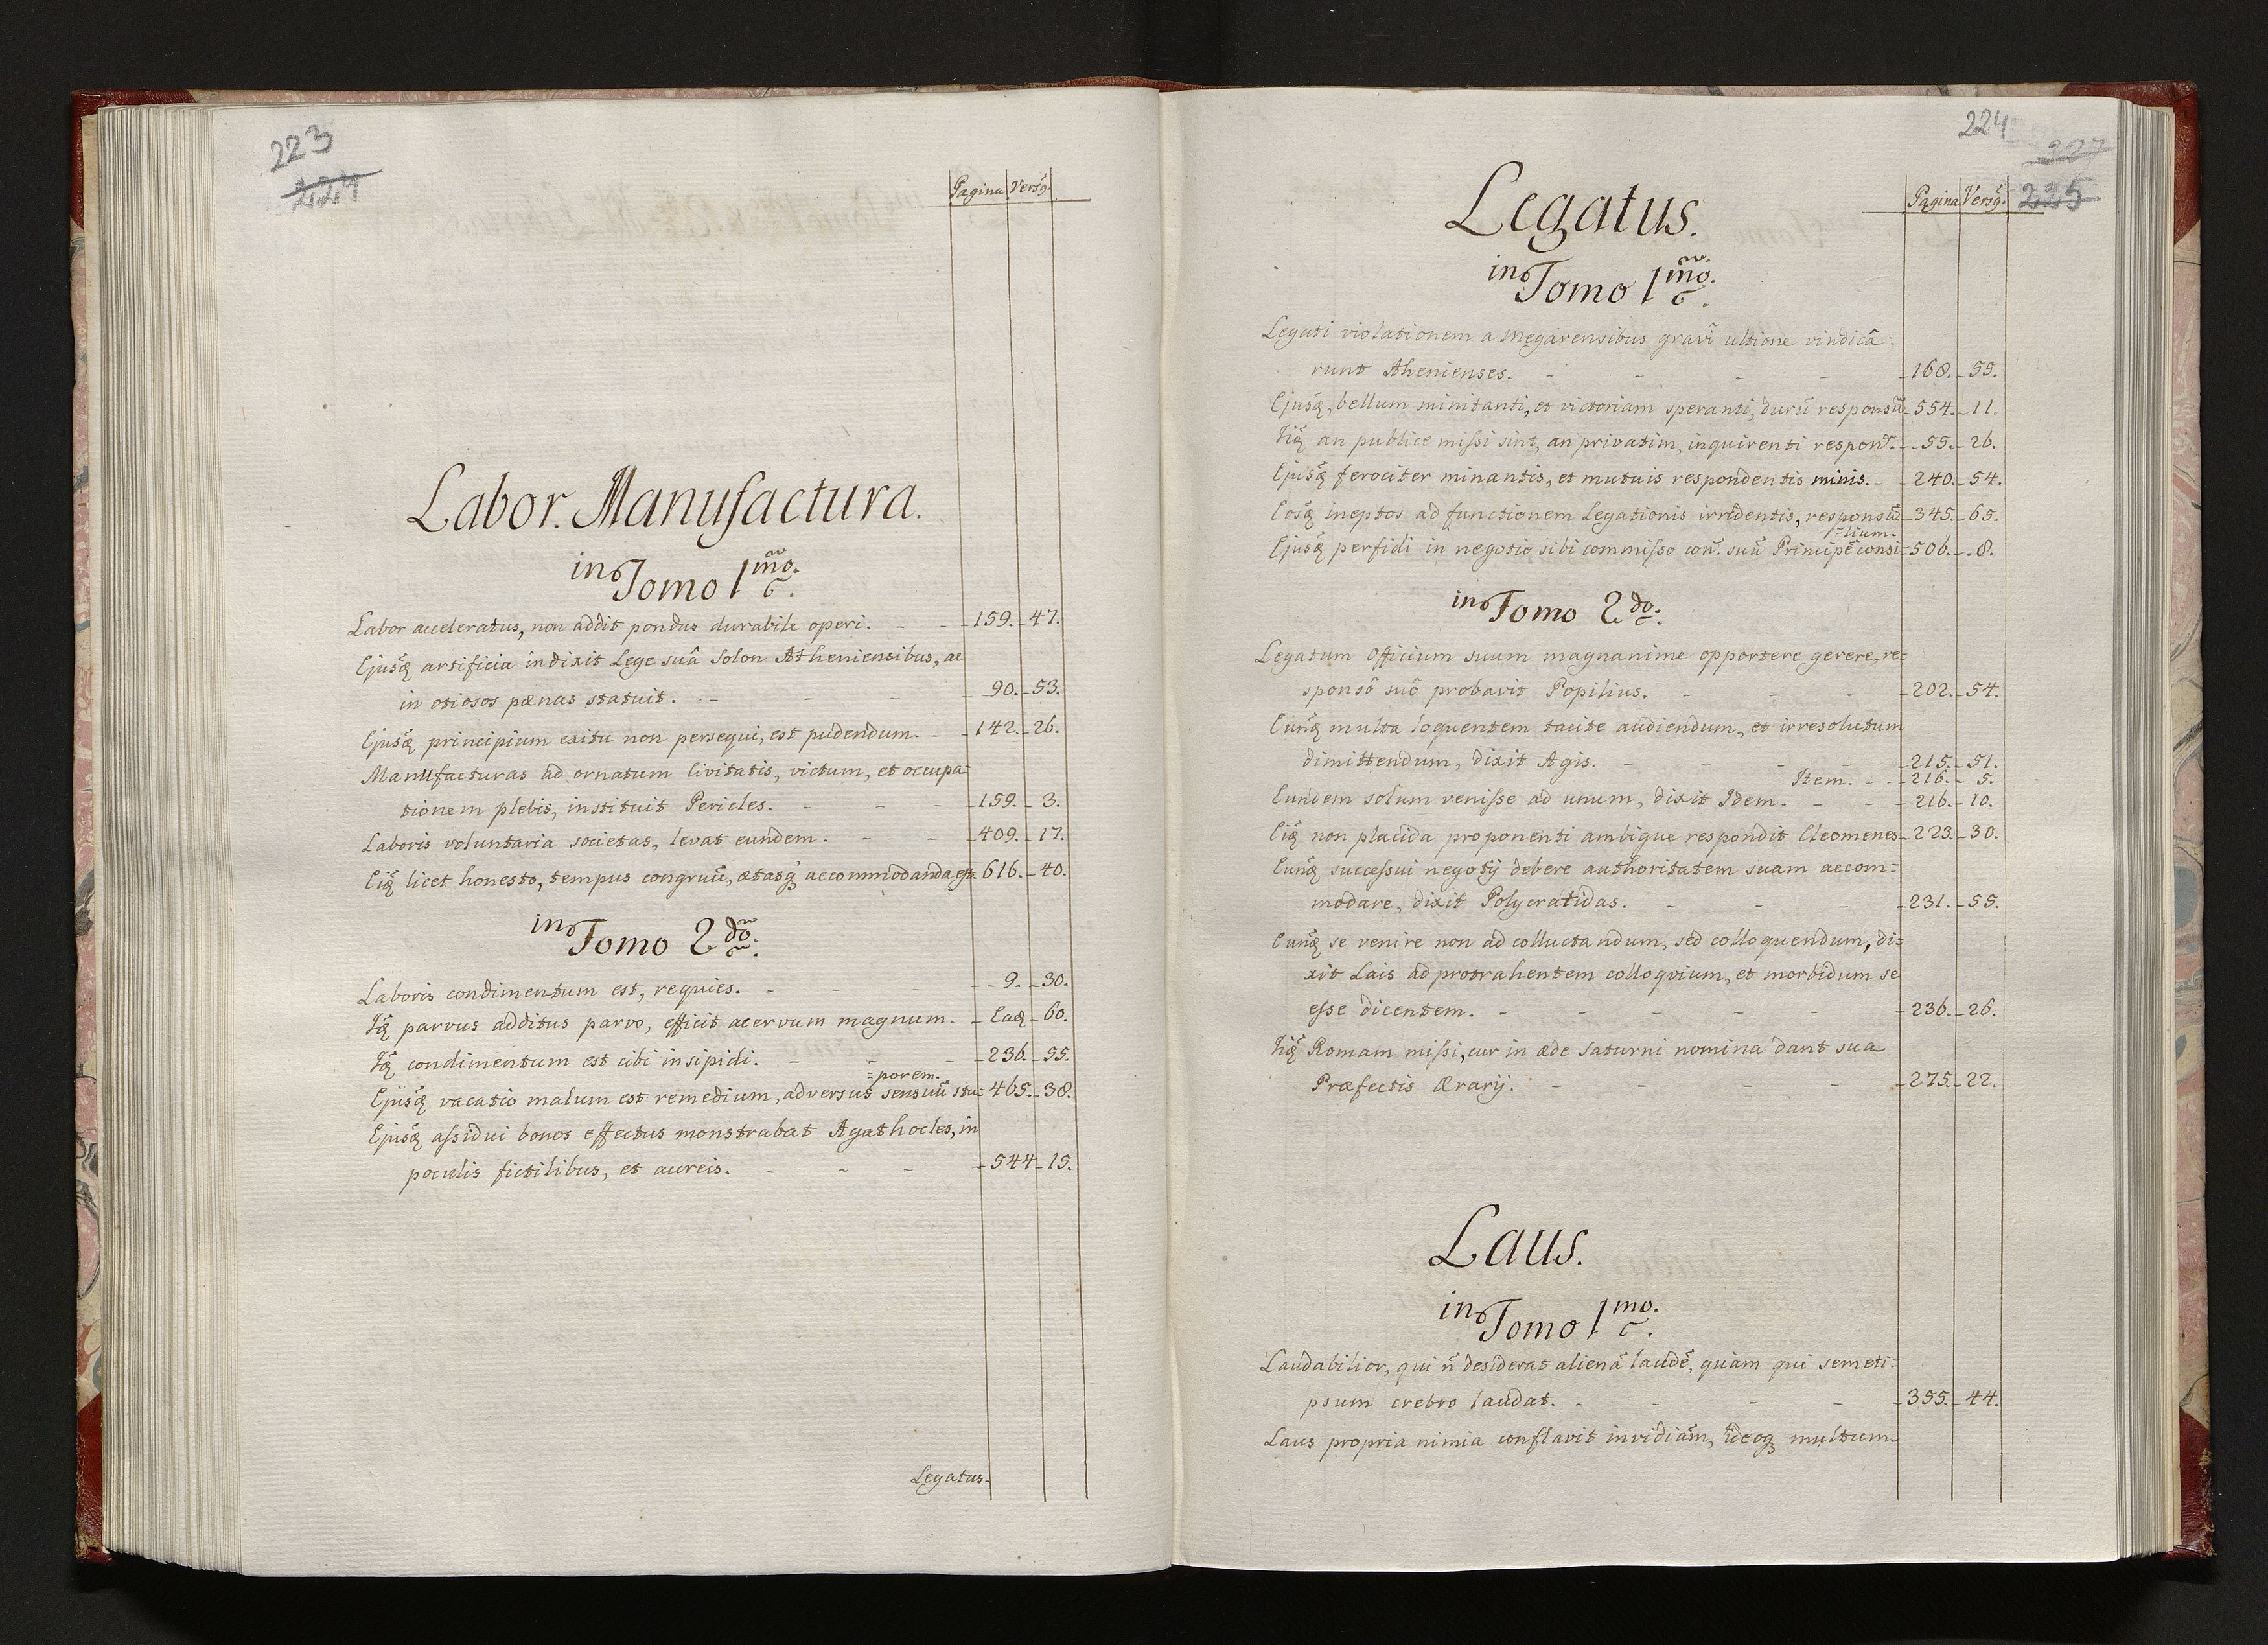 223
224
Pagina Versꝰ.
Labor. Manufactura.
in Tomo 1mo.
Labor acceleratus, non addit pondus durabile operi. - - 159. - 47.
Ejusꝗ artificia indixit Lege suâ Solon Atheniensibus, ac
in otiosos pænas statuit. - - - 90. - 53.
Ejusꝗ principium exitu non persequi, est pudendum. - - 142. - 26.
Manufacturas ad ornatum Civitatis, victum, et occupa=
tionem plebis, instituit Pericles. - - - 159. - 3.
Laboris voluntaria societas, levat eundem. - - - 409. - 17.
Eiꝗ licet honesto, tempus congruū, ætasꝗ accommodanda est. 616. - 40.
in Tomo 2do.
Laboris condimentum est, requies. - - - 9. - 30.
Iꝗ parvus additus parvo, efficit acervum magnum. - Eaꝗ - 60.
Iꝗ condimentum est cibi insipidi. - - - 236. - 55.
=porem.
Ejusꝗ vacatio malum est remedium, adversus sensuū stu= 465. - 38.
Ejusꝗ assidui bonos effectus monstrabat Agathocles, in
poculis fictilibus, et aureis. - - - 544 - 15.
Legatus.
224
227
225
Pagina Versꝰ.
Legatus.
in Tomo 1mo.
Legati violationem a Megarensibus gravi ultione vindicâ=
runt Athenienses. - - - - 168. - 55.
Ejusꝗ, bellum minitanti, et victoriam speranti, durū responsū - 554. - 11.
Iiꝗ an publice missi sint, an privatim, inquirenti respond. - 55. - 26.
Ejusꝗ ferociter minantis, et mutuis respondentis minis. - 240. - 54.
Eosꝗ ineptos ad functionem Legationis irridentis, responsū - 345. - 65.
=lium.
Ejusꝗ perfidi in negotio sibi commisso con. suū Principē consi= 506. - 8.
in Tomo 2do.
Legatum Officium suum magnanime opportere gerere, re=
sponsô suô probavit Popilius. - - - 202. - 54.
Eunꝗ multa loquentem tacite audiendum, et irresolutum
dimittendum, dixit Agis. - - - 215. - 51.
Item. - - 216. - 5.
Eundem solum venisse ad unum, dixit Idem. - - - 216. - 10.
Eiꝗ non placida proponenti ambigue respondit Cleomenes - 223. - 30.
Eunꝗ successui negotÿ debere authoritatem suam accom=
modare, dixit Polycratidas. - - - 231. - 55.
Eunꝗ se venire non ad colluctandum, sed colloquendum, di=
xit Lais ad protrahentem colloqvium, et morbidum se
esse dicentem. - - - - - 236. - 26.
Hiꝗ Romam missi, cur in æde Saturni nomina dant sua
Præfectis Ærarÿ. - - - - 275. - 22.
Laus.
in Tomo 1mo.
Laudabilior, qui ñ desiderat alienā laudē, quàm qui semeti=
psum crebro laudat. - - - - 355. - 44.
Laus propria nimia conflavit invidiam, ideoꝗ multum